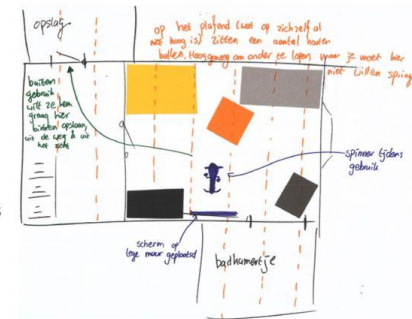 opslag
op het plafond (wat op zichzelf al
niet hoog is) zitten een aantal houten
balken. Hoog genoeg om onder te lopen maar je moet hier
niet willen spring
buiten
gebruik
wilt ze hem
graag hier
binnen opslaan,
uit de weg & uit
het zicht
spinner tijdens
gebruik
scherm op
lege muur geplaatst
badkamertje